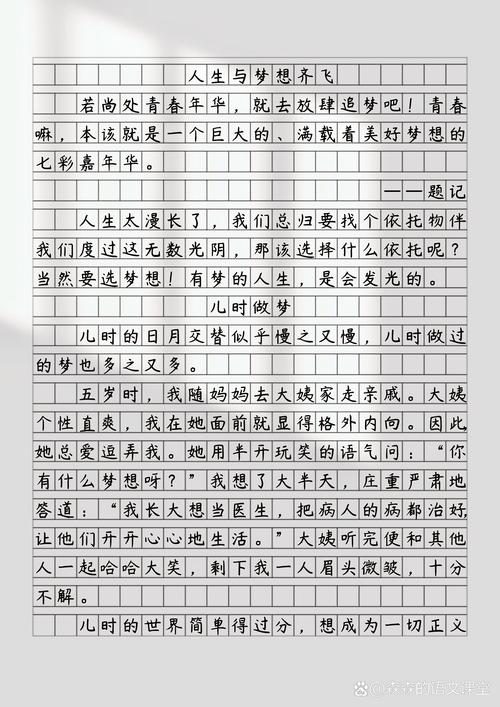 人生与梦想齐飞
若尚处青春年华，就去放肆追梦吧！青春
嘛，本该就是一个巨大的、满载着美好梦想的
七彩嘉年华。
——题记
人生太漫长了，我们总归要找个依托物伴
我们度过这无数光阴，那该选择什么依托呢？
当然要选梦想！有梦的人生，是会发光的。
儿时做梦
儿时的日月交替似乎慢之又慢，儿时做过
的梦也多之又多。
五岁时，我随妈妈去大姨家走亲戚。大姨
个性直爽，我在她面前就显得格外内向。因此，
她总爱逗弄我。她用半开玩笑的语气问：“你
有什么梦想呀？”我想了大半天，庄重严肃地
答道：“我长大想当医生，把病人的病都治好，
让他们开开心心地生活。”大姨听完便和其他
人一起哈哈大笑，剩下我一人眉头微皱，十分
不解。
儿时的世界简单得过分，想成为一切正义
@森森的语文课堂